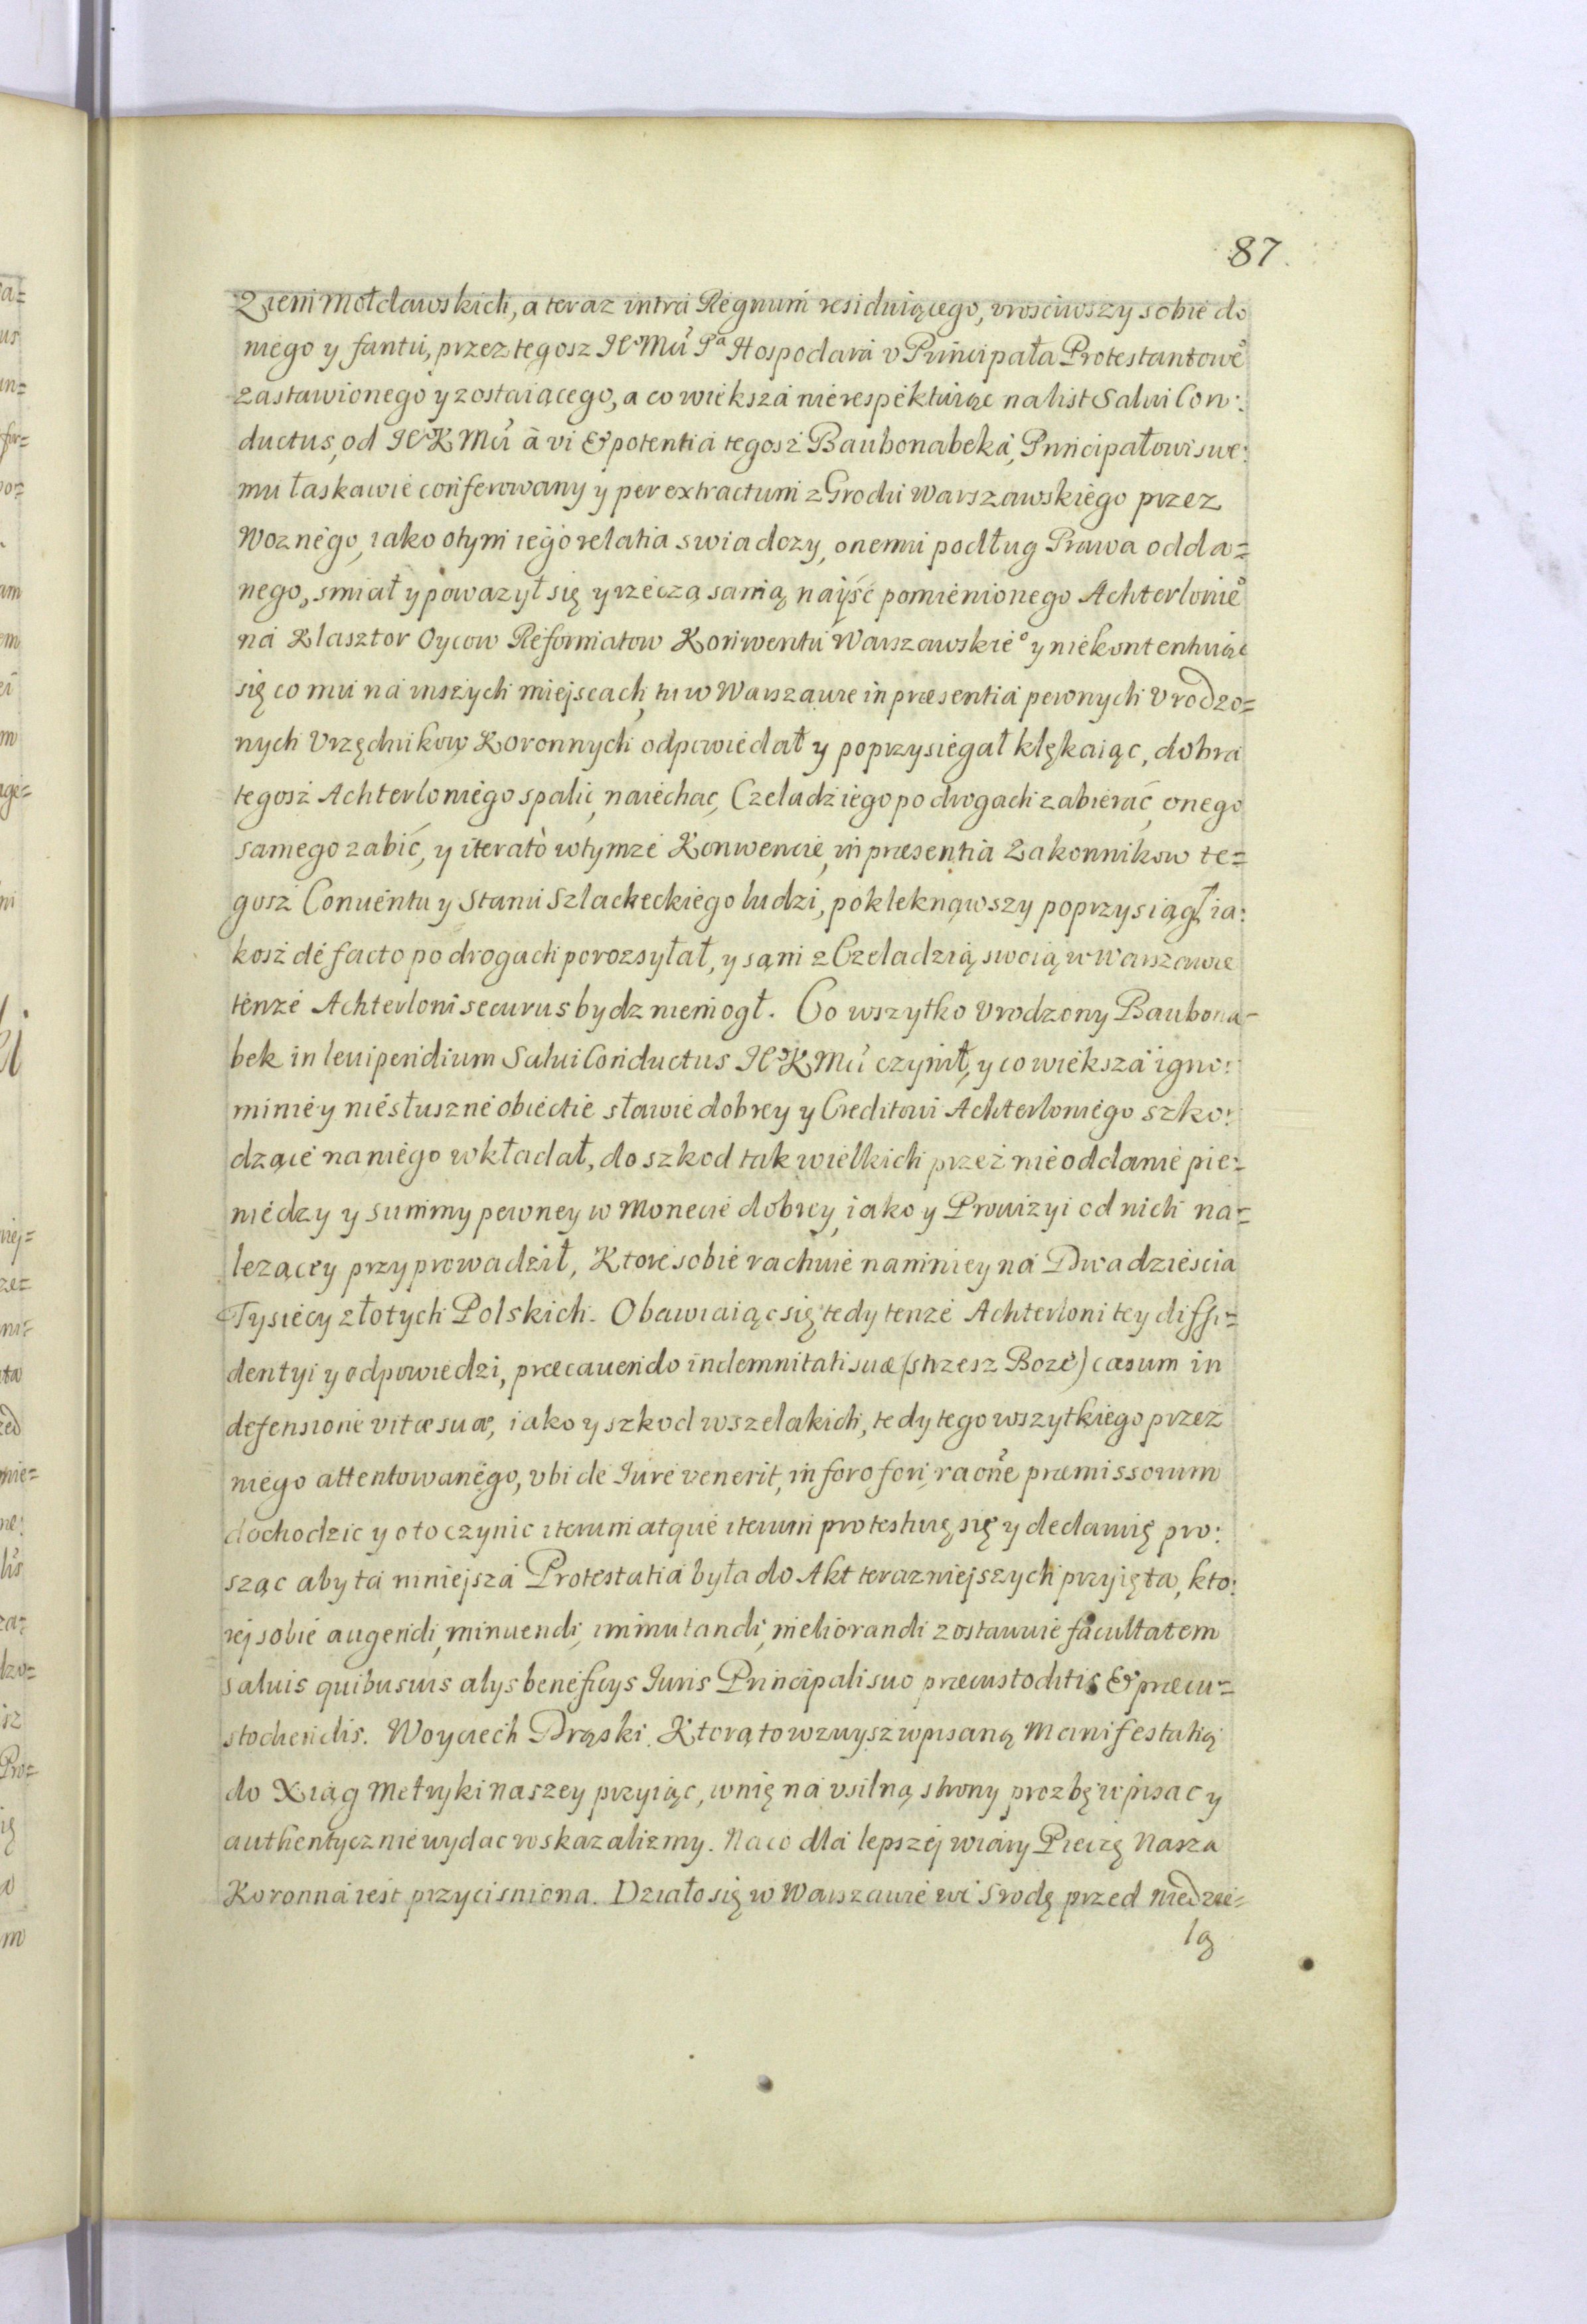 87.
Ziem Mołdawskich, a teraz intra Regnum residuiącego, vrościwszy sobie do
niego y fantu, przez tegosz JeoMći Pa Hospodara v Principała Protestantowe͛o
zastawionego y zostaiącego, a co większa nierespektuiąc na list Salui Con:
ductus, od JeoKMći à vi & potentia tegosż Baubonabeka, Principałowi swe:
mu łaskawie conferowany y per extractum z Grodu Warszawskiego przez
Woznego, iako otym iego relatia swiadczy, onemu podług Prawa odda=
nego, smiał y poważył się y rzeczą samą nayść pomienionego Achterlonie͛o
na Klasztor Oycow Reformatow Konwentu Warszawskieo y niekontentuiąc
się co mu na inszych miejscach, tu w Warszawie in præsentia pewnych Vrodzo=
nych Vrzędnikow Koronnych odpowiedał y poprzysiegał klękaiąc, dobra
tegosż Achterloniego spalić, naiechać, Czeladź iego po drogach zabierać, onego
samego zabić, y iteratò wtymże Konwencie, in præsentia Zakonnikow te=
gosż Conuentu y Stanu Szlacheckiego ludzi, poklęknąwszy poprzysiągł, ia:
kosż de facto po drogach porozsyłał, y sąm z Czeladzią swoią w Warszawie
tenże Achterloni securus bydz niemogł. Co wszytko Vrodzony Baubona=
bek in leuipendium Salui Conductus JeoKMći czynił, y co większa igno:
minie y niesłuszne obiectie sławie dobrey y Creditowi Achterloniego szko:
dzące na niego wkładał, do szkod tak wielkich przez nieoddanie pie=
niedzy y summy pewney w Monecie dobrey, iako y Prowizyi od nich na=
lezącey przyprowadził, Ktore sobie rachuie namniey na Dwadzieścia
Tysięcy złotych Polskich. Obawiaiąc się tedy tenże Achterloni tey diffi=
dentyi y odpowiedzi, præcauendo indemnitati suæ (strzesz Boże) casum in
defensione vitæ suæ, iako y szkod wszelakich, tedy tego wszytkiego przez
niego attentowanego, vbi de Iure venerit, in foro fori, raõne præmissorum
dochodzić y o to czynic iterum atque iterum protestuię się y declaruię pro:
sząc aby ta niniejsza Protestatia była do Akt terazniejszych przyięta, kto:
rej sobie augendi, minuendi, immutandi, meliorandi zostawuie facultatem
saluis quibusuis alys beneficys Iuris Principali suo præcustoditis & præcu=
stodiendis. Woyciech Drąski. Ktorą to wzwysz wpisaną Manifestatią
do Xiąg Metryki Naszey przyiąc, w nię na vsilną strony prozbę wpisac y
authentycznie wydac roskazalismy. Na co dla lepszej wiary Pieczę Nasza
Koronna iest przycisniona. Działo się w Warszawie we Srodę przed Niedzie=
lą